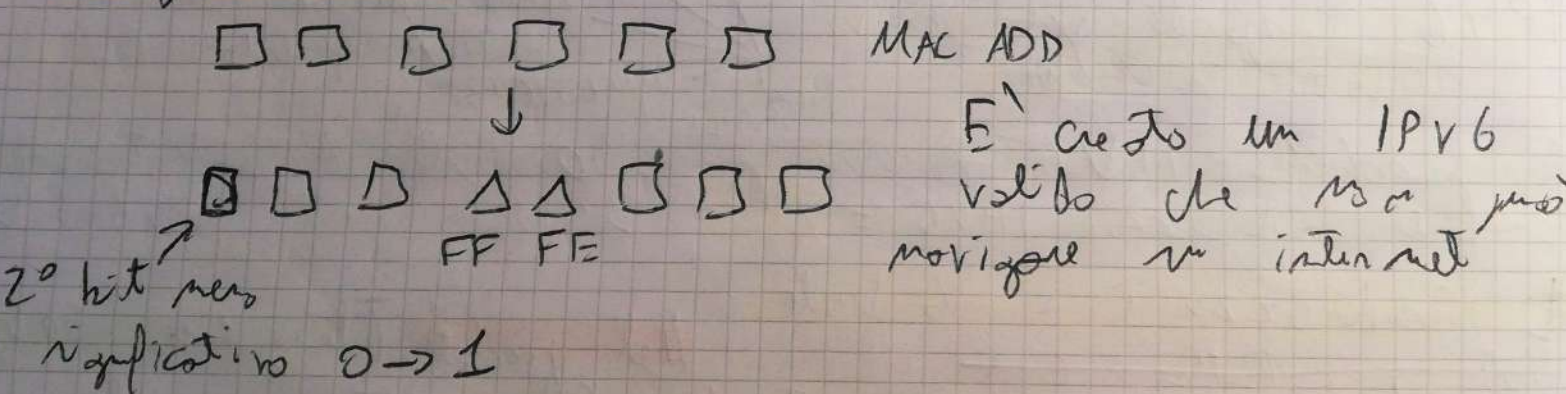 MAC ADD
È creato un IPv6
valido che non può
navigare su internet
FF FE
2° bit meno
significativo 0 -> 1